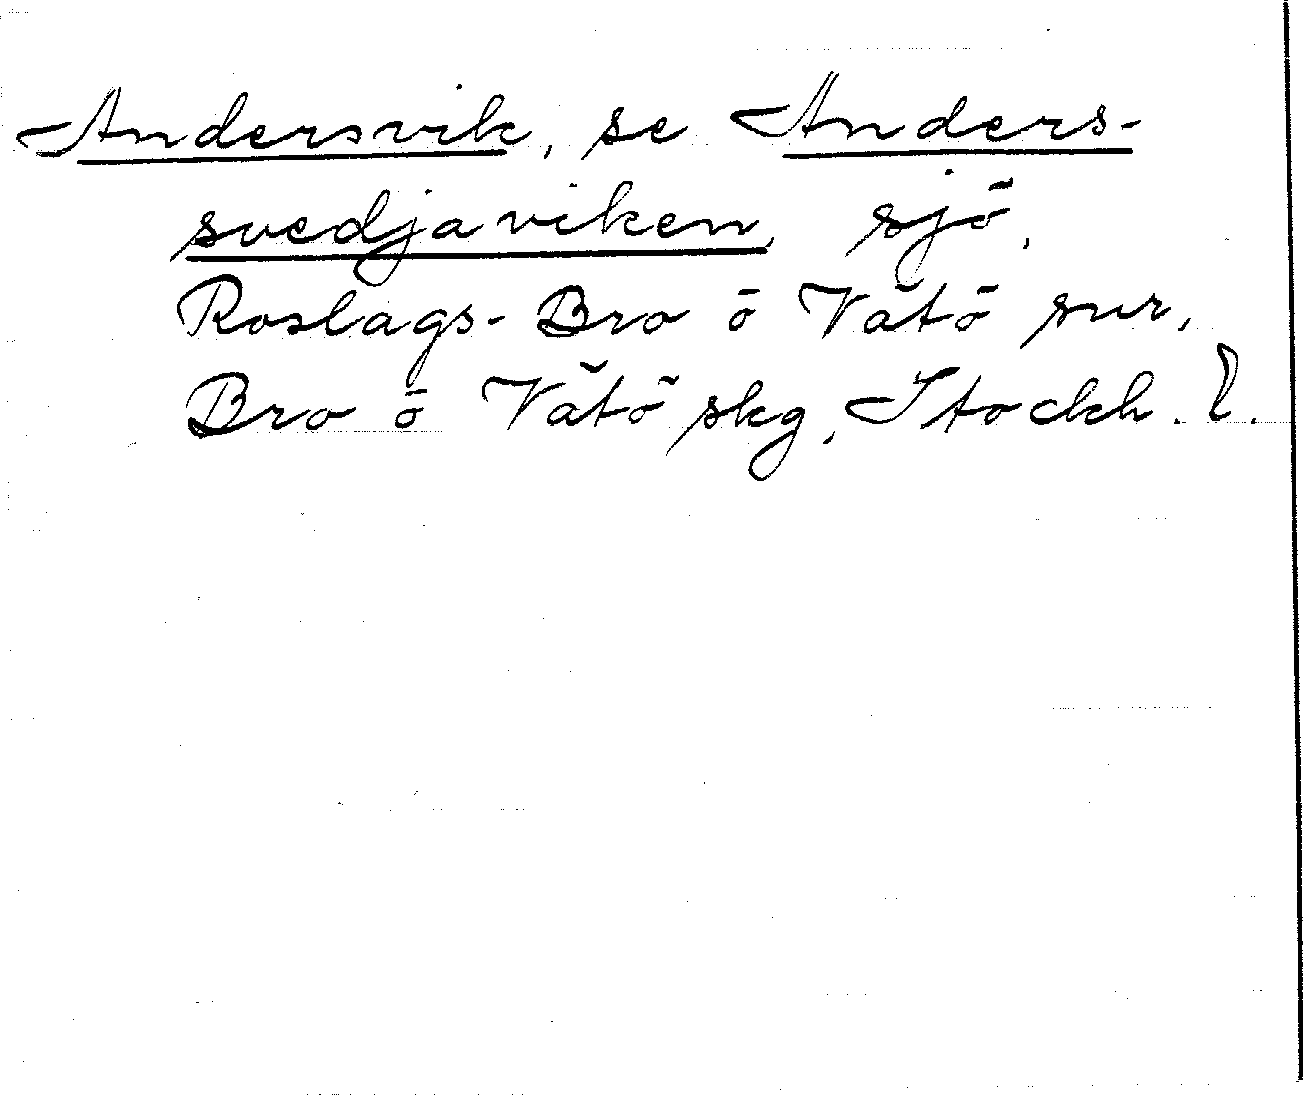 Andersvik, se Anders-
svedjaviken, sjö,
Roslags-Bro o Vätö snr,
Bro o Vätö skg, Stockh. l.